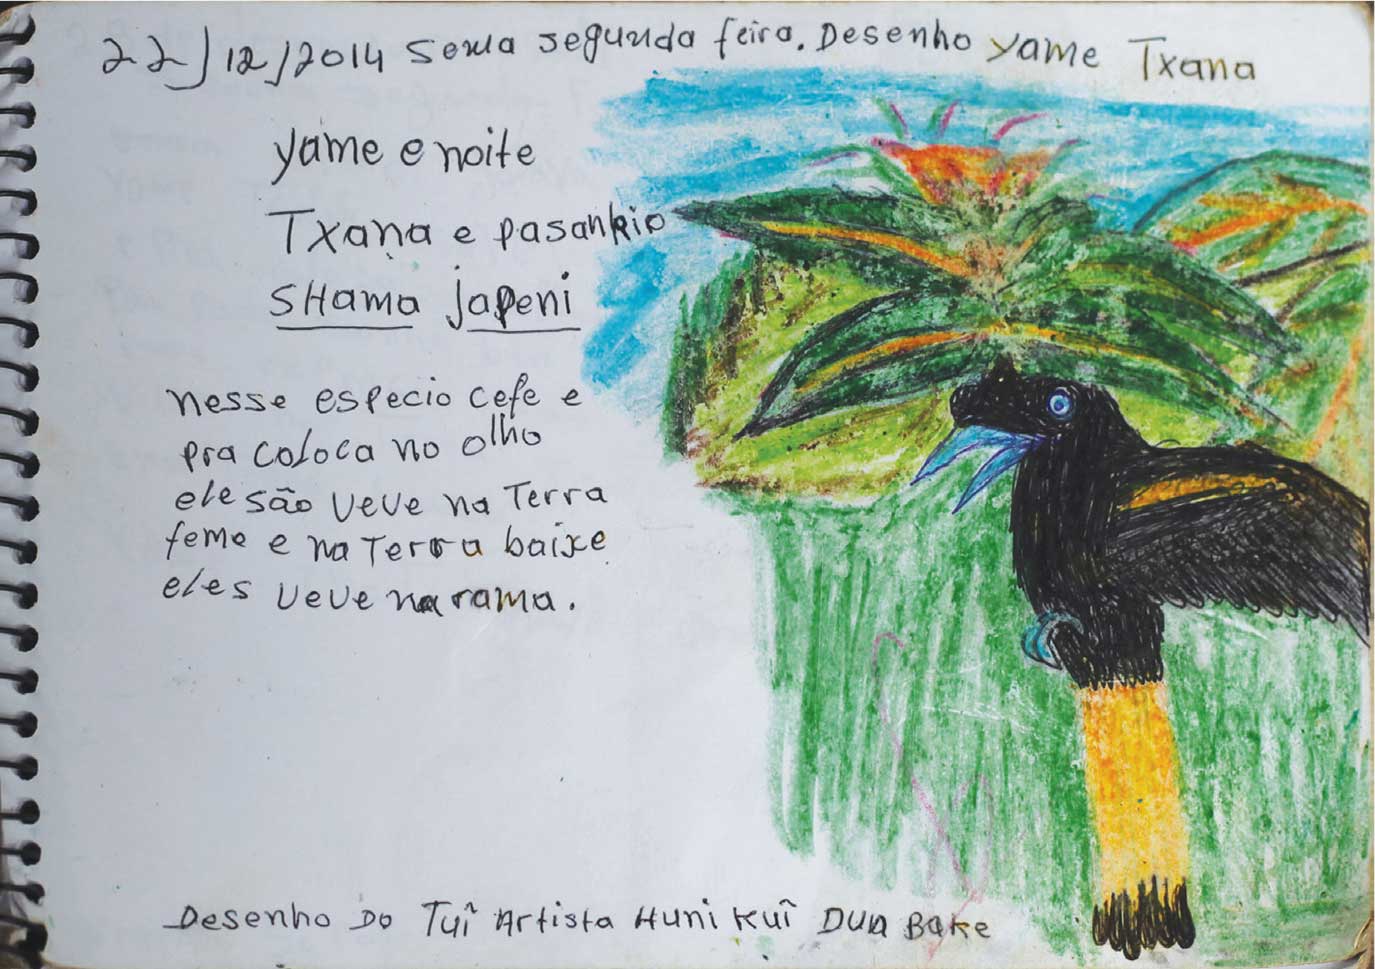 22/12/2014 sema segunda feira. Desenho yame Txana
yame e noite
Txana e pasankio
SHama japeni
nesse especio cefe e
pra coloca no olho
ele são veve na Terra
feme e na Terra baixe
eles veve na rama.
Desenho Do Tuî Artista Huni Kuî Dua Bake